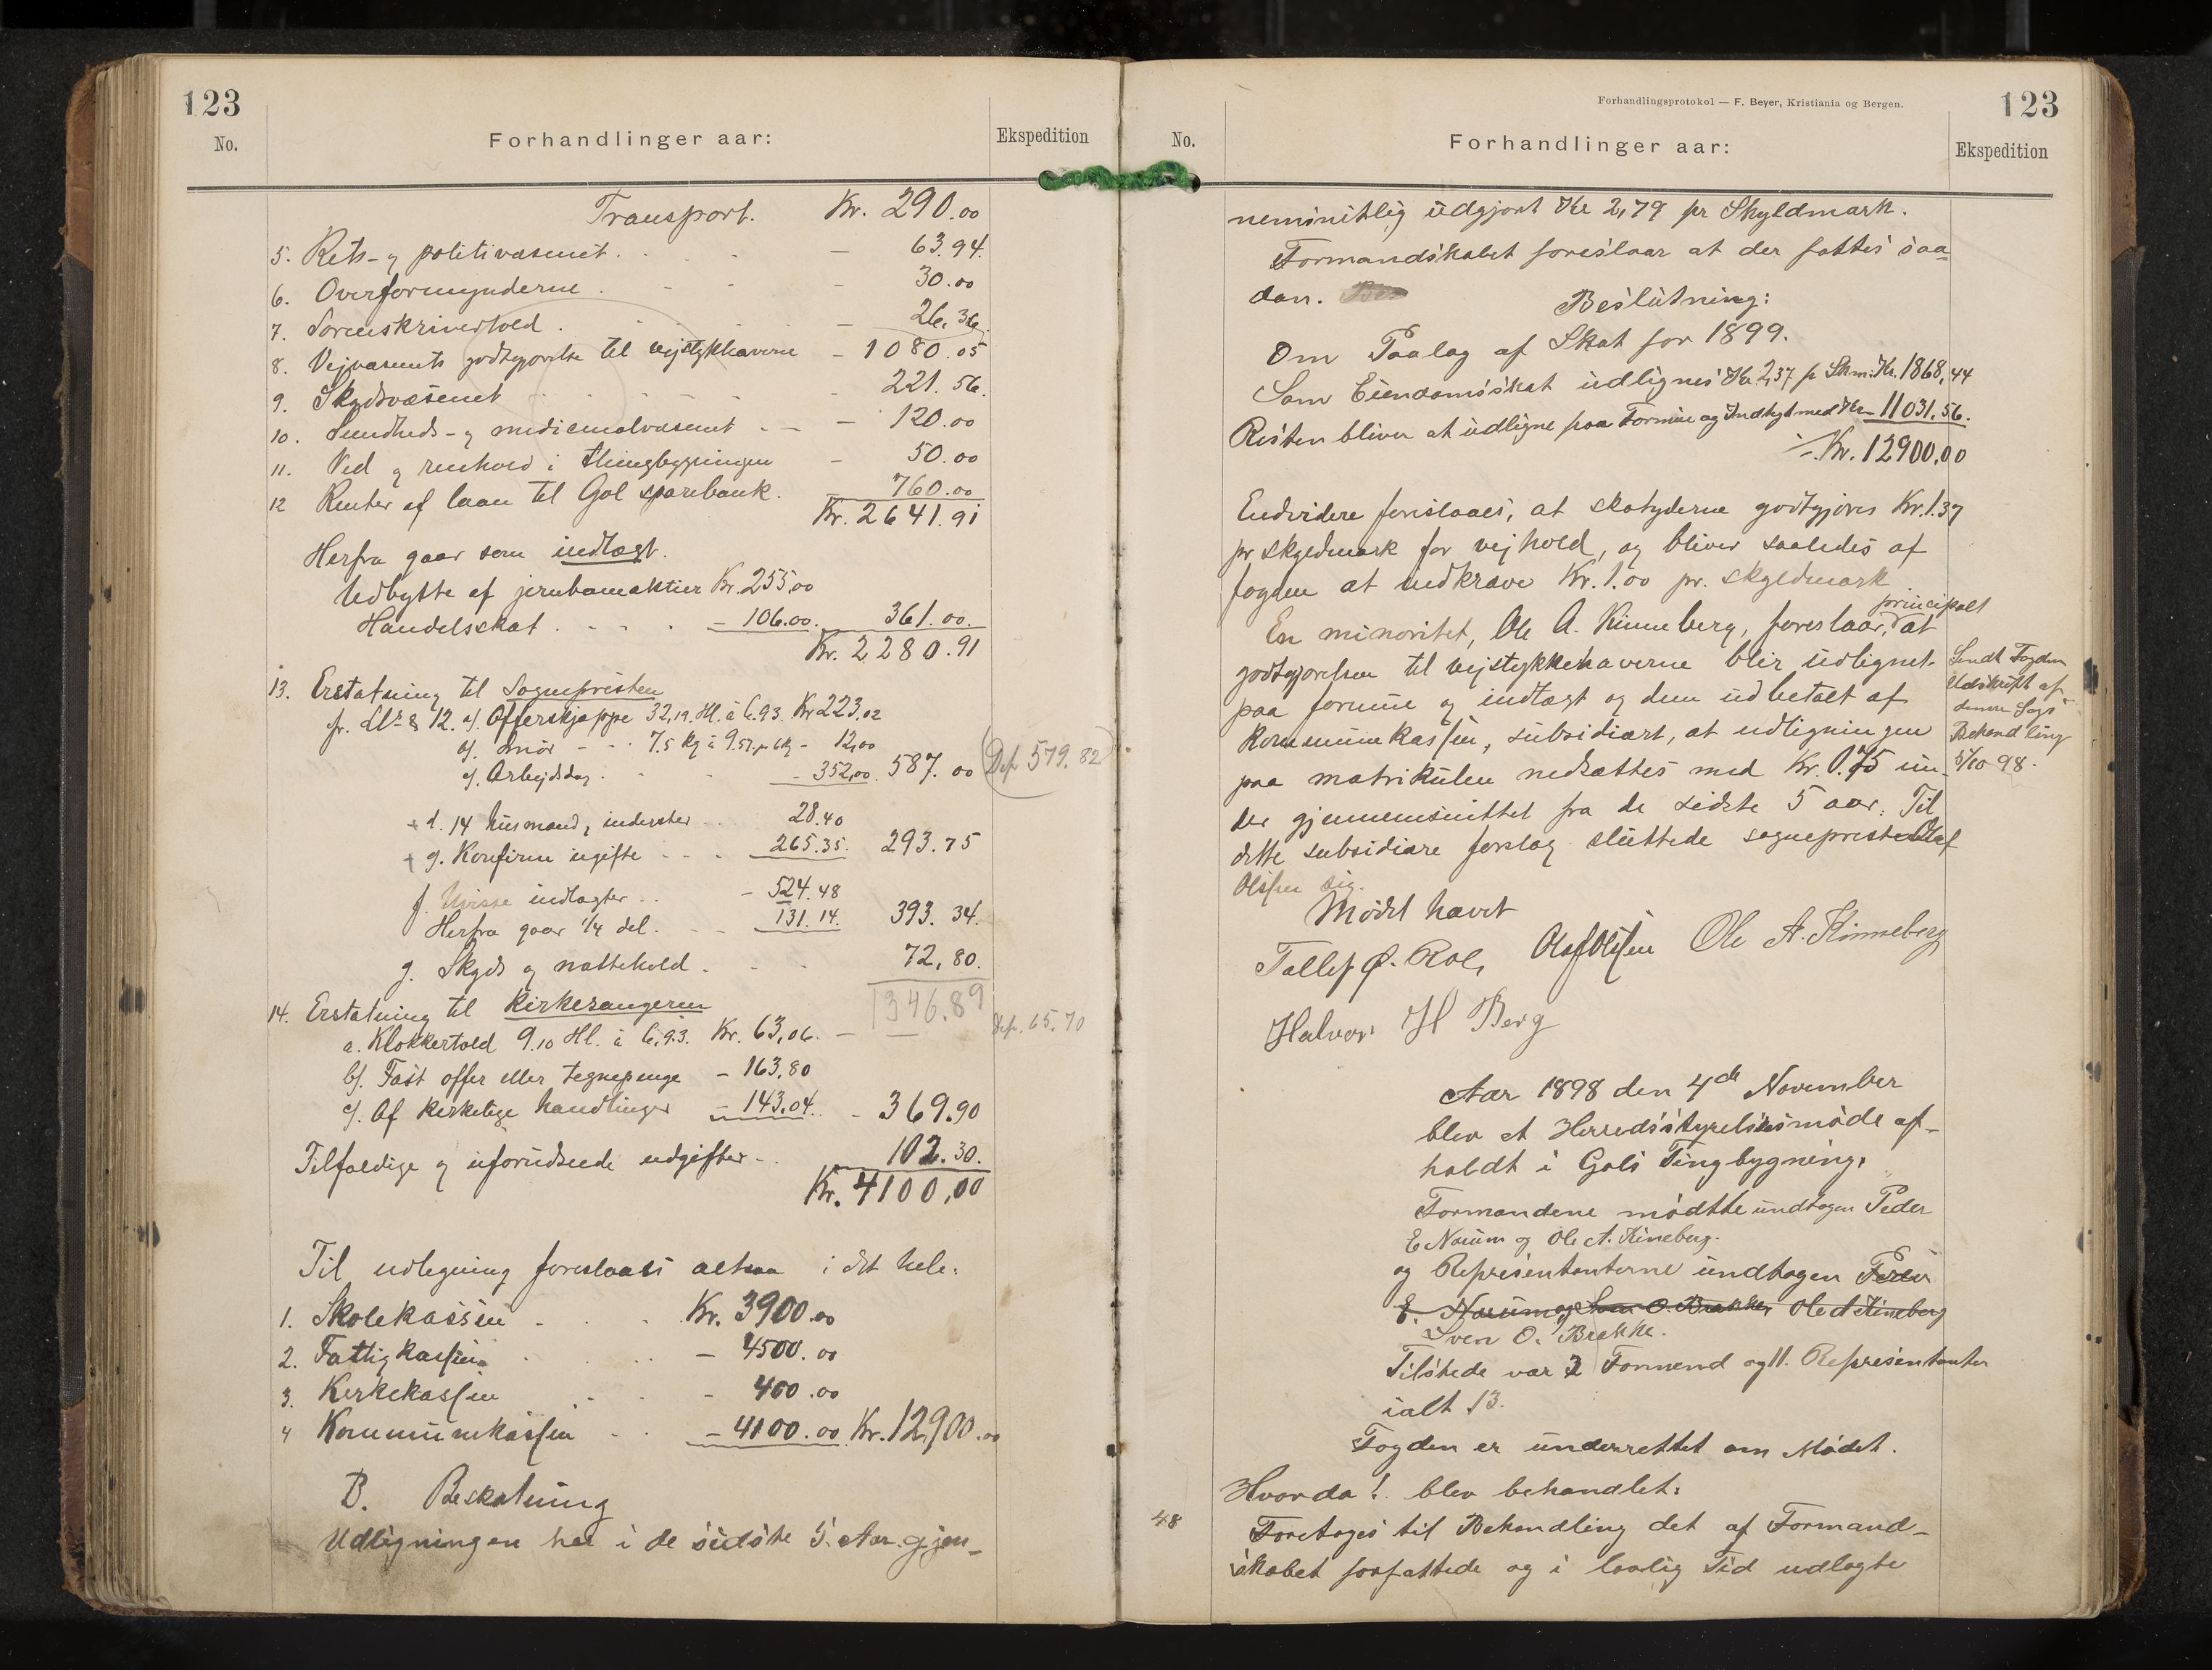 123
No.
Forhandlinger aar:
Ekspedition
Transport. Kr. 290.00
5. Rets- og politivæsenet. - 63.94.
6. Overformynderne. - 30.00
7. Sorenskrivertold. - 26.36.
8. Vejvæsenets godtgjørelse til vejstykkhaverne - 1080.05
9. Skydsvæsenet - 221.56.
10. Sundheds- og medicinalvæsenet - 120.00
11. Ved og renhold i thingbygningen - 50.00
12 Renter af laan til Gol sparebank. 760.00
Kr. 2641.91
Herfra gaar som indtægt.
Udbytte af jernbaneaktier Kr. 255,00
Handelsskat - 106.00. 361.00.
Kr. 2280.91
13. Erstatning til Sognepresten
a/. Offerskjæppe 32,19. Hl. à 6.93. Kr 223.02
b/. Smør - 7.5 kg à 9.57 pr 6 kg - 12,00
c/. Arbejdsdag. - 352,00. 587.00 Def 579.82
d. 14 husmænd, inderster 28.40
g. Konfirm ugifte 265.35. 293.75
f. Uvisse indtægter - 524.48
Herfra gaar 1/4 del. 131.14. 393.34.
g. Skyds og nattehold. 72,80.
1346.89
14. Erstatning til Kirkesangeren
Def. 65.70
a. Klokkertold 9.10 Hl. à 6,93. Kr. 63,06. -
b/. Fast offer eller tegnepenge - 163,80
c/. Af kirkelige handlinger - 143,04. - 369.90
Tilfældige og uforudseede udgifter - 102.30.
Kr. 4100,00
Til udligning foreslaaes altsaa i det hele:
1. Skolekassen Kr. 3900.00
2. Fattigkassen - 4500.00
3. Kirkekassen - 400.00
4 Kommunekassen - 4100.00 Kr. 12,900.00
B. Beskatning
Udligningen har i de sidste 5. Aar. gjen-
Forhandlingsprotokol — F. Beyer, Kristiania og Bergen.
123
No.
Forhandlinger aar:
Ekspedition
nemsnitlig udgjort Kr 2,79 pr Skyldmark.
Formandskabet foreslaar at der fattes saa-
dan. Beslutning:
Om Paalæg af Skat for 1899.
Som Eiendomsskat udlignes Kr 2,37 pr Skm. Kr. 1868,44
Resten bliver at udligne paa Formue og Indtægt med Kr - 11031.56.
Kr. 12900,00
Endvidere foreslaaes, at skatyderne godtgjøres Kr. 1.37
pr skyldmark for vejhold, og bliver saaledes af
fogden at indkræve Kr. 1.00 pr. skyldmark
principalt
En minoritet, Ole A. Kinneberg, foreslaar, at
godtgjørelsen til vejstykkehaverne blir udlignet
paa formue og indtægt og dem udbetalt af
kommunekassen, subsidiært, at udligningen
paa matrikulen nedsættes med Kr. 0.75 un-
der gjennemsnittet fra de sidste 5 aar. Til
dette subsidiære forslag sluttede sogneprest Olaf
Olssen sig.
Sendt Fogden
Udskrift af
denne Sags
Behandling
5/10 98.
Mødet hævet
Olaf Olssen Ole A. Kinneberg
Halvor H Berg
Aar 1898 den 4de November
blev et Herredsstyrelsesmøde af-
holdt i Gols Tingbygning.
Formændene mødtte undtagen Peder
E Narum og Ole A. Kineberg.
og Repræsentanterne undtagen Peder
E. Narum og Sven O. Brekke, Ole A Kineberg
Sven O. Brekke.
Tilstede var 2 Formænd og 11. Repræsentanter
ialt 13.
Fogden er underrettet om Mødet.
Hvorda! blev behandlet:
48
Foretoges til Behandling det af Formand-
skabet forfattede og i lovlig Tid udlagte